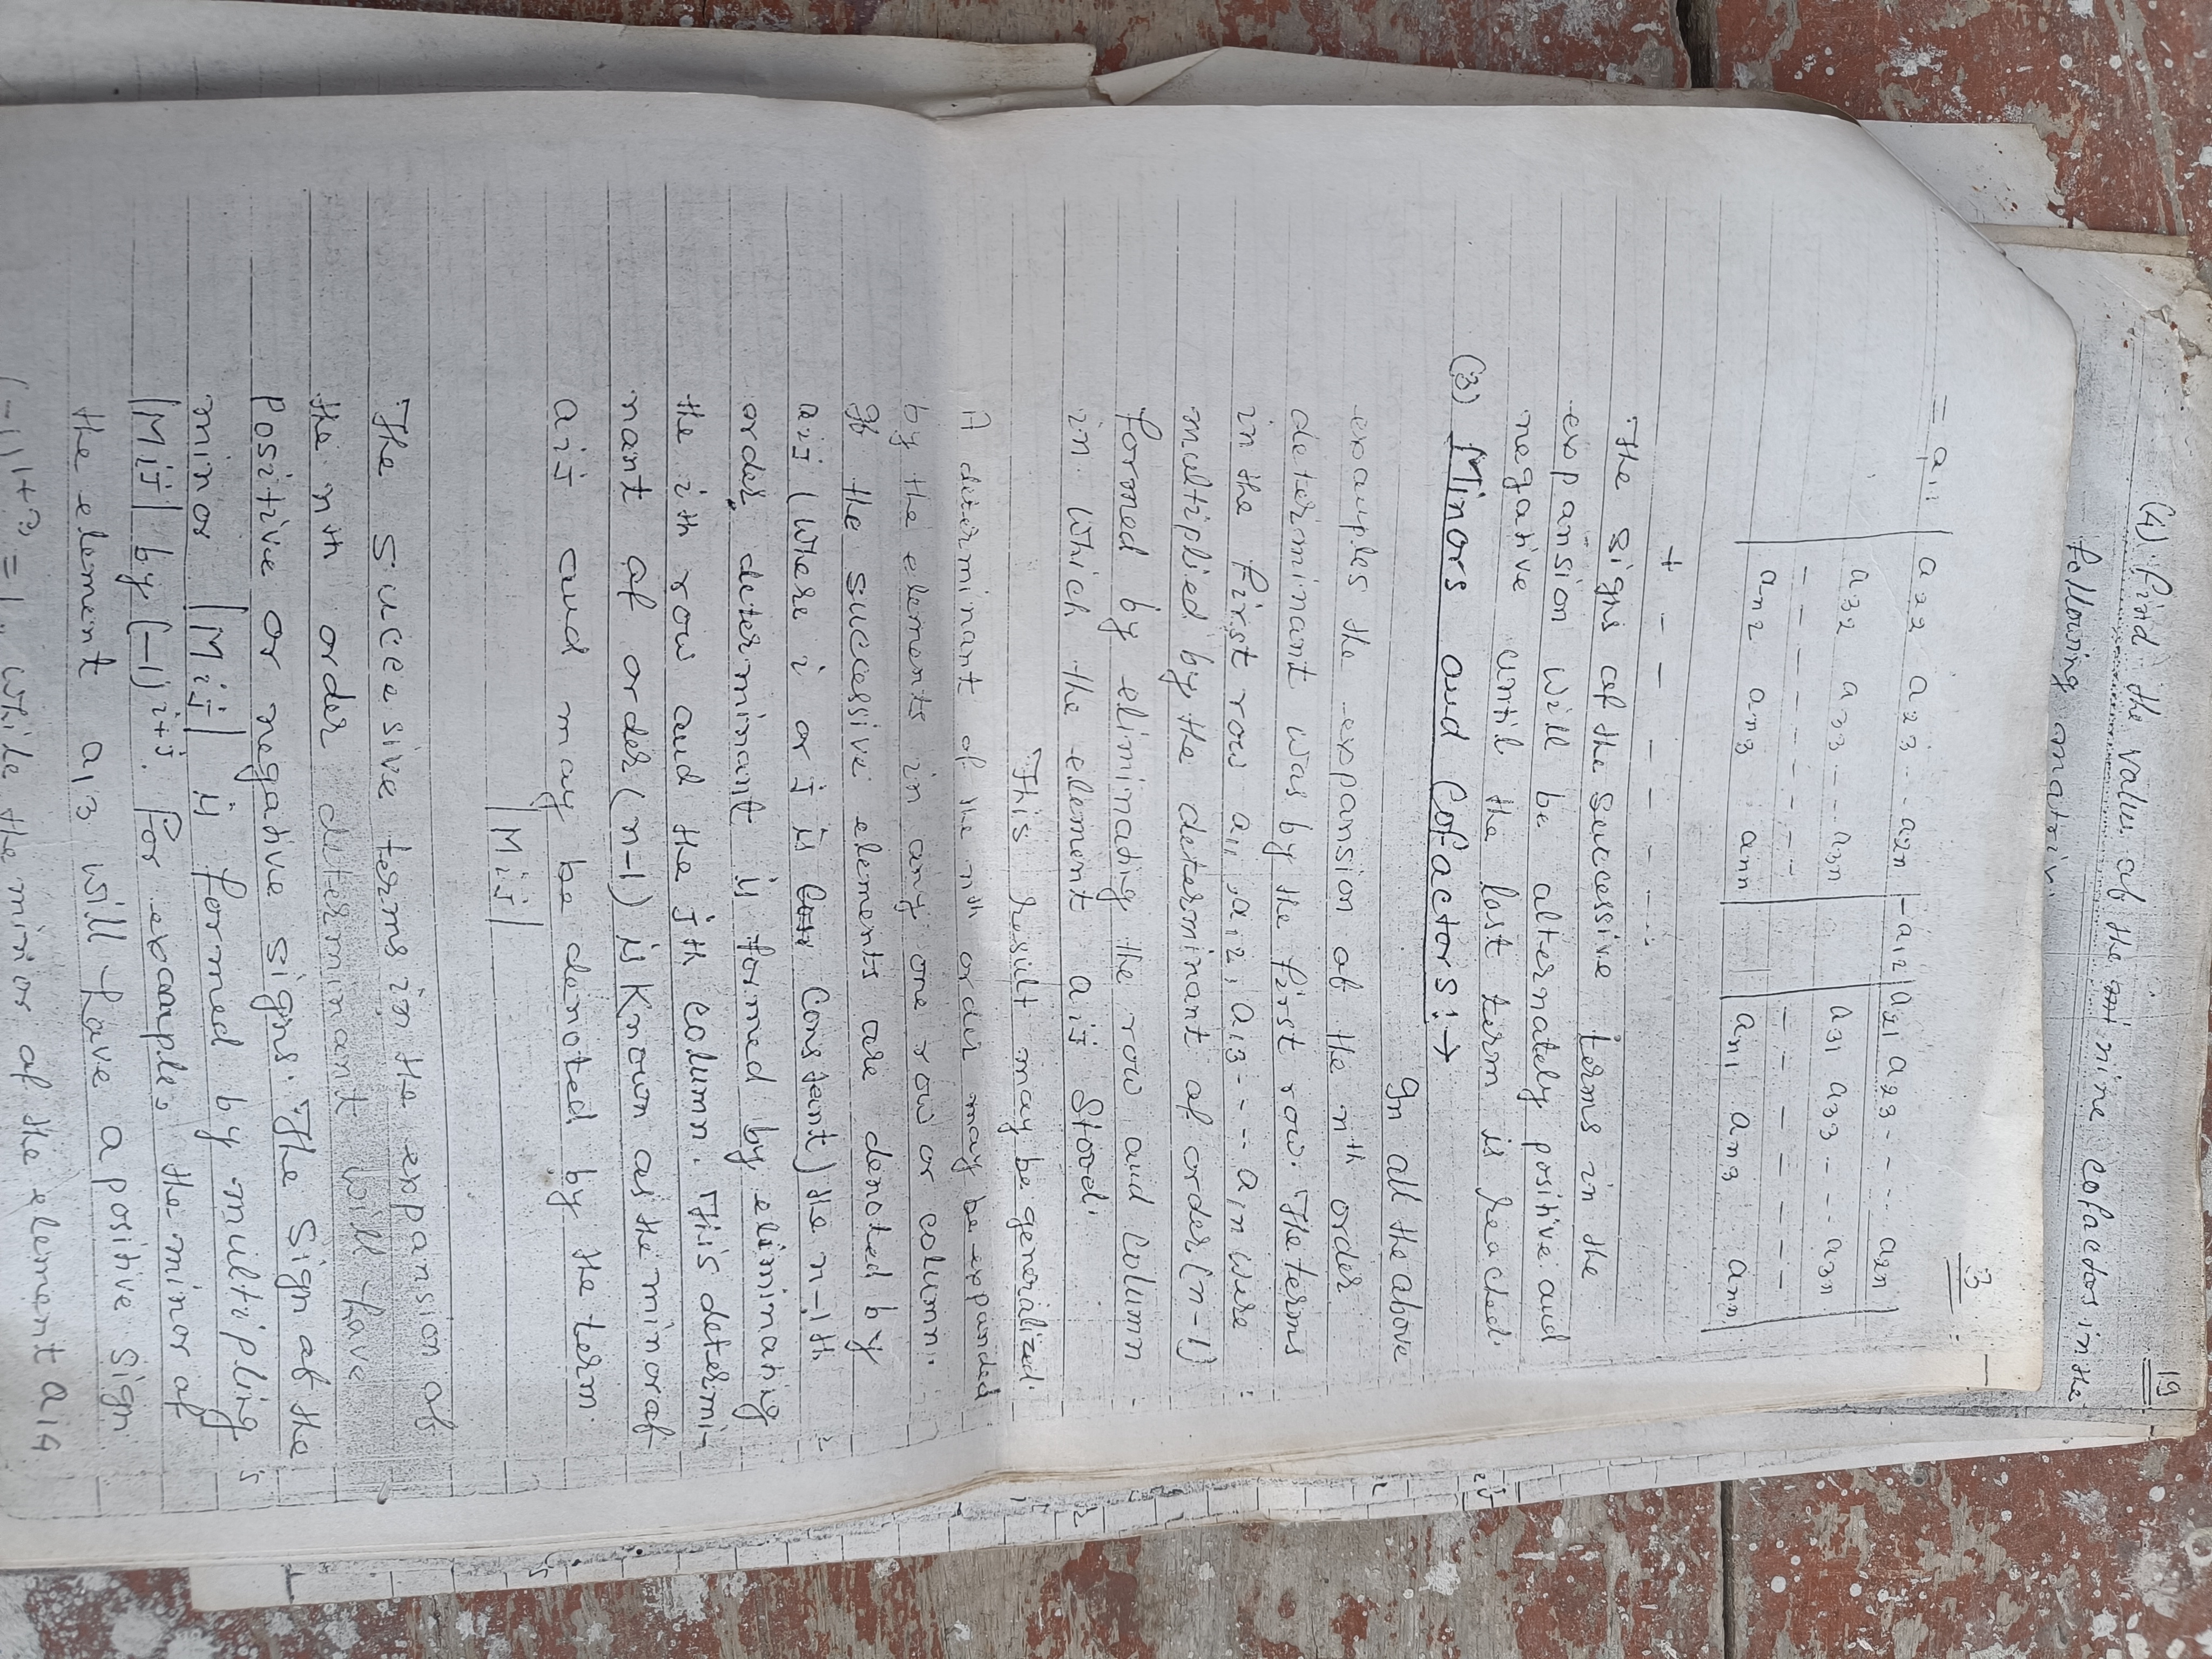 19
(4) find the value of the nine cofactors in the
following matrix.
3
= a11 | a22 a23 -- a2n | - a12 | a21 a23 - - ... a2n |
a32 a33 --- a3n a31 a33 - -- a3n
- - - - - - - - - - - - -
an2 an3 ann an1 an3 ann
+ - - - - - - ...
The signs of the successive terms in the
expansion will be alternately positive and
negative until the last term is reached.
(3) Minors and Cofactors:→
In all the above
examples the expansion of the nth order
determinant was by the first row. The terms
in the first row a11, a12, a13 --- a1n were
multiplied by the determinant of order (n-1)
formed by eliminatig the row and column
in which the element aij stood.
This result may be generalized.
A determinant of the nth order may be expanded
by the elements in any one row or column.
If the successive elements are denoted by
aij (where i or j is constant) the n-1th
order determinant is formed by eliminatig
the ith row and the jth column. This determi-
nant of order (n-1) is known as the minor of
aij and may be denoted by the term.
|Mij|
The successive terms in the expansion of
the nth order determinant will have
positive or negative signs. The sign of the
minor |Mij| is formed by multipling
|Mij| by (-1)i+j. For example, the minor of
the element a13 will have a positive sign
(-1)1+3 = 1, while the minor of the element a14